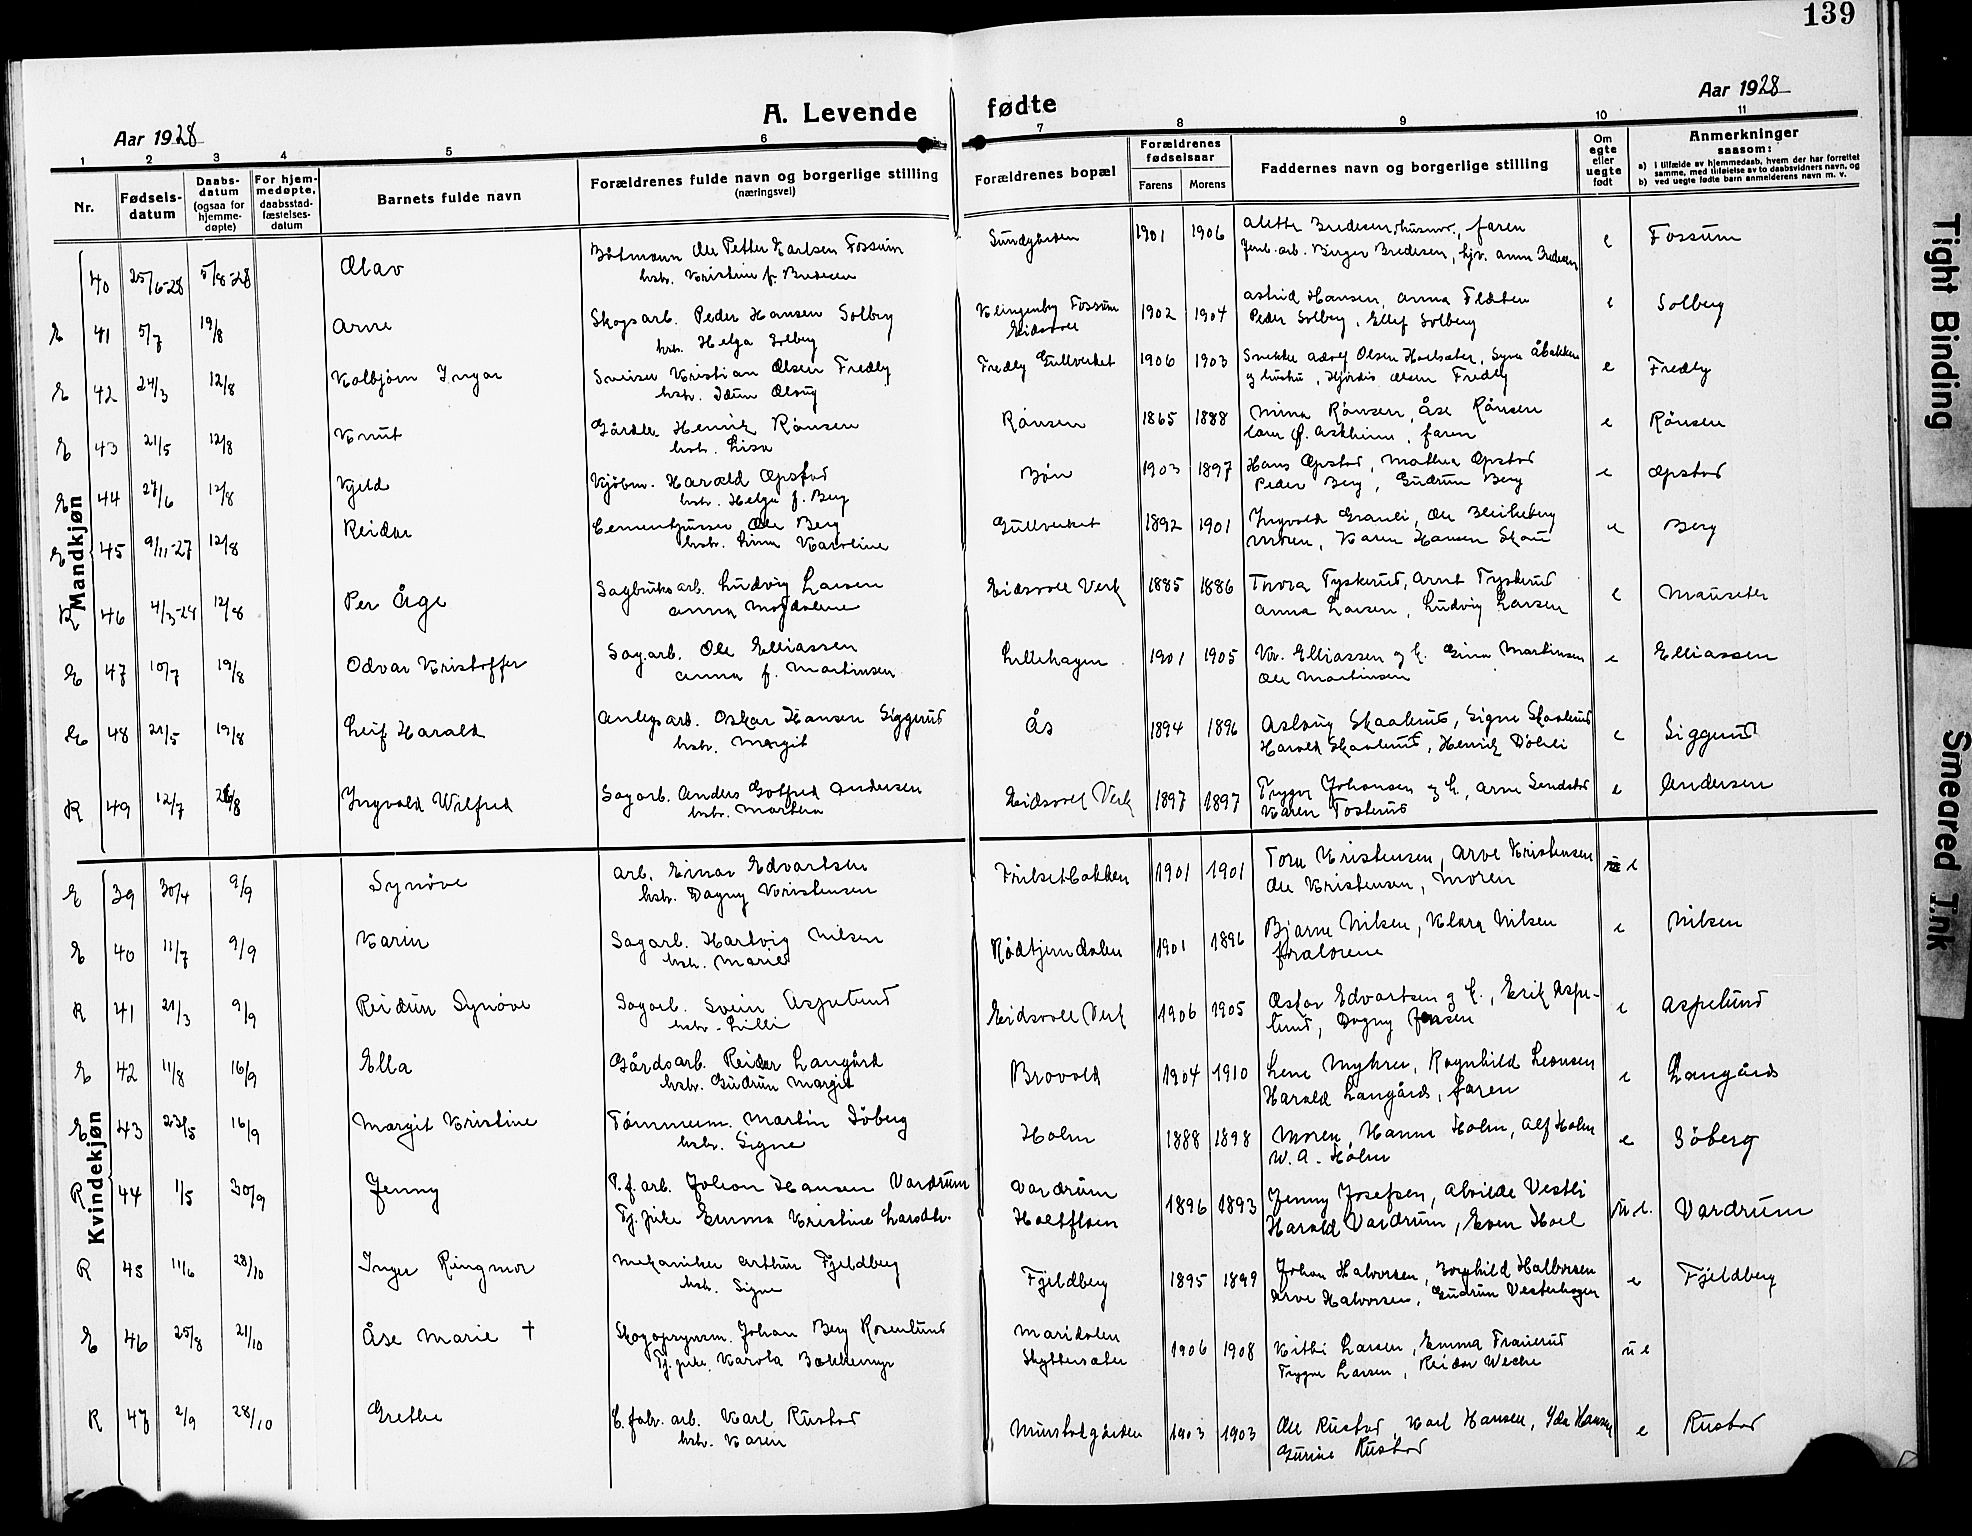 139
Aar 1928
A. Levende
fødte
Aar 1928
1 2 3 4 5 6 7 8 9 10 11
Nr.
Fødsels-
datum
Daabs-
datum
(ogsaa for
hjemme-
døpte)
For hjem-
medøpte,
daabsstad-
fæstelses-
datum
Barnets fulde navn
Forældrenes fulde navn og borgerlige stilling
(næringsvei)
Forældrenes bopæl
Forældrenes
fødselsaar
Farens Morens
Faddernes navn og borgerlige stilling
Om
egte
eller
uegte
født
Anmerkninger
saasom:
a) i tilfælde av hjemmedaab, hvem der har forrettet
samme, med tilføielse av to daabsvidners navn, og
b) ved uegte fødte barn anmelderens navn m. v.
Mandkjøn
40 25/6-28 5/8-28 Olav Båtmann Ole Petter Karlsen Fossum 1901 1906 faren e Fossum
hstr. Kristine f. Bredesen Birger Bredesen, hjv. Anna Bredesen
E 41 5/7 19/8 Arne Skogsarb. Peder Hansen Solberg Klingenby Fossum 1902 1904 Astrid Hansen, Anna e Solberg
hstr. Helga Solberg Eidsvoll Peder Solberg, Ellef Solberg
E 42 24/3 12/8 Kolbjørn Ingar Kristian Olsen Fredly Fredly Gullverket 1906 1903 Snekker Adolf Olsen e Fredly
hstr. Hjørdis Olsen Fredly
E 43 21/5 12/8 Knut Gårdbr. Henrik Rånsen Rånsen 1865 1888 Mina Rånsen, Åse Rånsen e Rånsen
hstr. Lisa faren
E 44 27/6 12/8 Kjeld Kjøbm. Harald Opstad Bøn 1903 1897 Hans Opstad, Mathea Opstad e Opstad
hstr. Helga f. Berg Peder Berg, Gudrun Berg
E 45 9/11-27 12/8 Reidar Ole Berg Gullverket 1892 1901 Ingvald Granli, Ole e Berg
hstr. Karoline Moren, Karen Hansen
R 46 12/8 Per Åge Sagbruksarb. Ludvig Larsen Eidsvoll Verk 1885 1886 Thora Tyskerud, Arnt Tyskerud e Mauseter
Anna Magdalene Anna Larsen, Ludvig Larsen
E 47 10/7 19/8 Odvar Kristoffer Sagarb. Ole Elliassen Lillehagen 1901 1905 Kr. Elliassen og h. Gina Martinsen e Elliassen
Anna f. Martinsen Ole Martinsen
E 48 21/5 19/8 Leif Harald Anlegsarb. Oskar Hansen Siggerud Ås 1894 1896 Aslaug Skaalerud, Signe Skaalerud e Siggerud
hstr. Margit Harald Skaalerud, Henrik Døhli
R 49 12/7 26/8 Ingvald Wilfred Sagarb. Anders Gotfred Andersen Eidsvoll Verk 1897 1897 Trygve Johansen og h., Arne e Andersen
hstr. Marthea Karen
Kvindekjøn
E 39 30/4 9/9 Synøve Arb. Einar Edvartsen 1901 1901 Tora Kristensen, Arve Kristensen e
hstr. Dagny Kristensen Ole Kristensen, Moren
E 40 11/7 9/9 Karin Sagarb. Hartvig Nilsen Rådtjerndalen 1901 1896 Bjarne Nilsen, Klara Nilsen e Nilsen
hstr. Marie
R 41 21/3 9/9 Reidun Synøve Sagarb. Svein Aspelund Eidsvoll Verk 1906 1905 Oskar Edvartsen og h., Erik Aspe- e Aspelund
hstr. Lilli lund, Dagny
E 42 11/8 16/9 Ella Gårdsarb. Reidar Langård Brovold 1904 1910 Lene Myhrer, Ragnhild e Langårds
hstr. Gudrun Margit Harald Langårds, faren
E 43 23/5 16/9 Margit Kristine Tømmerm. Martin Søberg Holm 1888 1898 Moren, Hanna Holm, Alf Holm e Søberg
hstr. Signe W. A. Holm
R 44 1/5 30/9 Jenny P.f. arb. Johan Hansen Vardrum Vardrum 1896 1893 Jenny Josefsen, Alvilde Vestli u.e. Vardrum
Tj. pike Emma Kristine Larsdtr. Holtfloen Harald Vardrum, Even Hoel
R 45 11/6 28/10 Inger Ringmor Mekaniker Arthur Fjeldberg Fjeldberg 1895 1899 Johan Halvorsen, Borghild Halvorsen e Fjeldberg
hstr. Signe Arve Halvorsen, Gudrun Vesterhagen
E 46 25/8 21/10 Åse Marie † Johan Berg Rosenlund Maridalen 1906 1908 Kitti Larsen, Emma u e
Tj. pike Karola Trygve Larsen, Reidar
R 47 2/9 28/10 Grethe C. fabr. arb. Karl Rustad 1903 1903 Ole Rustad, Karl Hansen, Yda Hansen e Rustad
hstr. Karen Rustad
Tight Binding
Smeared Ink